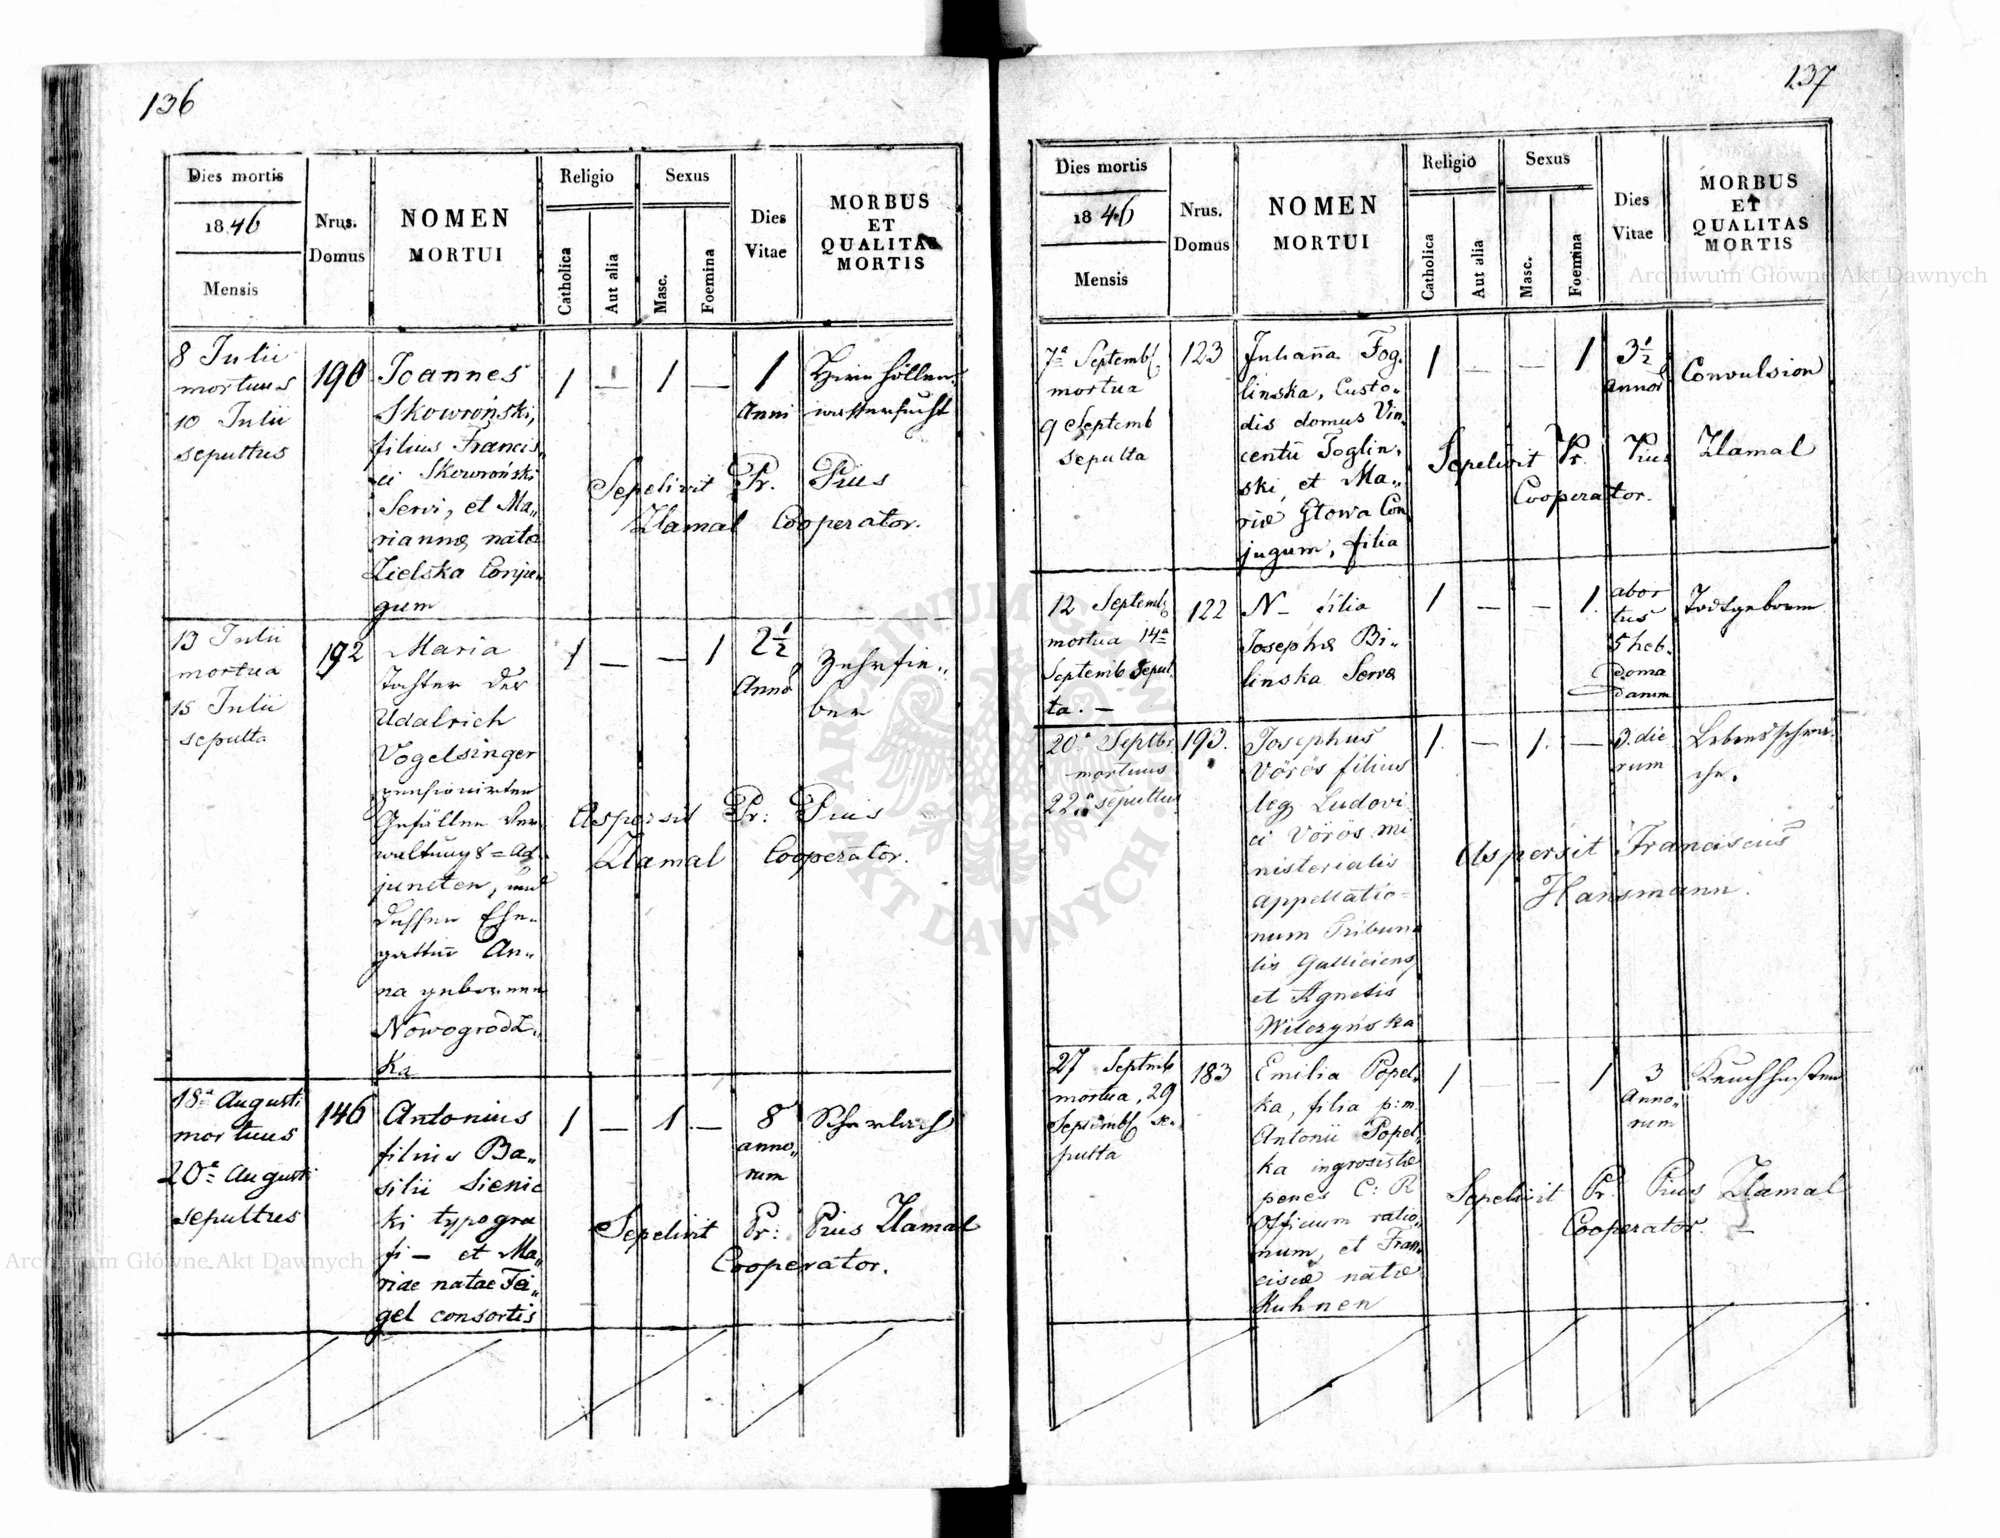 136
Dies mortis
1846
Mensis
Nrus.
Domus
NOMEN
MORTUI
Religio
Catholica
Aut alia
Sexus
Masc.
Foemina
Dies
Vitae
MORBUS
ET
QUALITAS
MORTIS
8 Julii
mortuus
10 Julii
sepultus
190
Joannes
Skowroński,
filius Francis„
ci Skowroński
Servi, et Ma„
riannæ nata
Zielska Conju„
gum
1 — 1 —
1
Anni
Hirnhöllen„
wassersucht
Sepelivit Pr. Pius
Zlamal Cooperator.
13 Julii
mortua
15 Julii
sepulta
192
Maria
Tochter der
Udalrich
Vogelsinger
pensionirten
Gefällen Ver„
waltungs=Ad„
juncten, und
dessen Ehe„
gattin An„
na geborenen
Nowogrodz„
ka
1 — — 1
2½
Anno
Zehrfie„
ber
Aspersit Pr: Pius
Zlamal Cooperator.
18ª Augusti
mortuus
20ª Augusti
sepultus
146
Antonius
filius Ba„
silii Sienic
ki typogra
fi — et Ma„
riae natae Fei„
gel consortis
1 — 1 —
8
anno„
rum
Scharlach
Sepelivit Pr: Pius Zlamal
Cooperator.
137
Dies mortis
1846
Mensis
Nrus.
Domus
NOMEN
MORTUI
Religio
Catholica
Aut alia
Sexus
Masc.
Foemina
Dies
Vitae
MORBUS
ET
QUALITAS
MORTIS
7ª Septemb
mortua
9 Septemb
sepulta
123
Julianna Fog„
linska, Custo„
dis domus Vin„
centii Foglin„
ski, et Ma„
riæ Głowa Con
jugum, filia
1 — — 1
3½
annor
Convulsion
Sepelivit Pr. Pius Zlamal
Cooperator.
12 Septemb
mortua 14ª
Septemb Sepul„
ta. —
122
N— filia
Josephæ Bi„
linska Servæ
1 — — 1.
abor
tus
5 heb„
doma
darum
Todtgeboren
20ª Septbr
mortuus
22ª sepultus
193.
Josephus
Vörös filius
leg Ludovi
ci Vörös mi
nisterialis
Appellatio=
num Tribuna
lis Galiciens
et Agnetis
Wilczyńska
1. — 1. —
3. die
rum
Lebensschwä„
che.
Aspersit Franciscus
Hansmann.
27 Septemb
mortua, 29
Septemb se„
pulta
183
Emilia Popel„
ka, filia p:m.
Antonii Popel„
ka ingrosistæ
penes C: R
Officium ratio„
num, et Fran„
ciscæ natæ
Kuhnen
1 — — 1
3
Anno„
rum
Keuchhusten
Sepelivit Pr. Pius Zlamal
Cooperator. —
Archiwum Główne Akt Dawnych
Archiwum Główne Akt Dawnych
ARCHIWUM GŁÓWNE AKT DAWNYCH